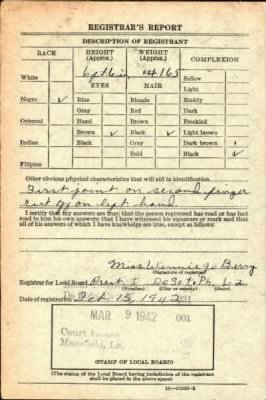 REGISTRAR'S REPORT
DESCRIPTION OF REGISTRANT
RACE HEIGHT (Approx.) WEIGHT (Approx.) COMPLEXION
White 6 ft 6 in 165 Sallow
EYES HAIR Light
Negro ✓ Blue Blonde Ruddy
Gray Red Dark
Oriental Hazel Brown Freckled
Brown ✓ Black ✓ Light brown
Indian Black Gray Dark brown
Bald Black ✓
Filipino
Other obvious physical characteristics that will aid in identification.
First joint on second finger
cut off on left hand
I certify that my answers are true; that the person registered has read or has had
read to him his own answers; that I have witnessed his signature or mark and that
all of his answers of which I have knowledge are true, except as follows:
Miss Berry
(Signature of registrar)
Registrar for Local Board Prect. 1 DeSoto Ph. La.
(Number) (City or county) (State)
Date of registration Feb 15, 1942
MAR 9 1942
Court House
Mansfield, La.
(STAMP OF LOCAL BOARD)
(The stamp of the Local Board having jurisdiction of the registrant
shall be placed in the above space)